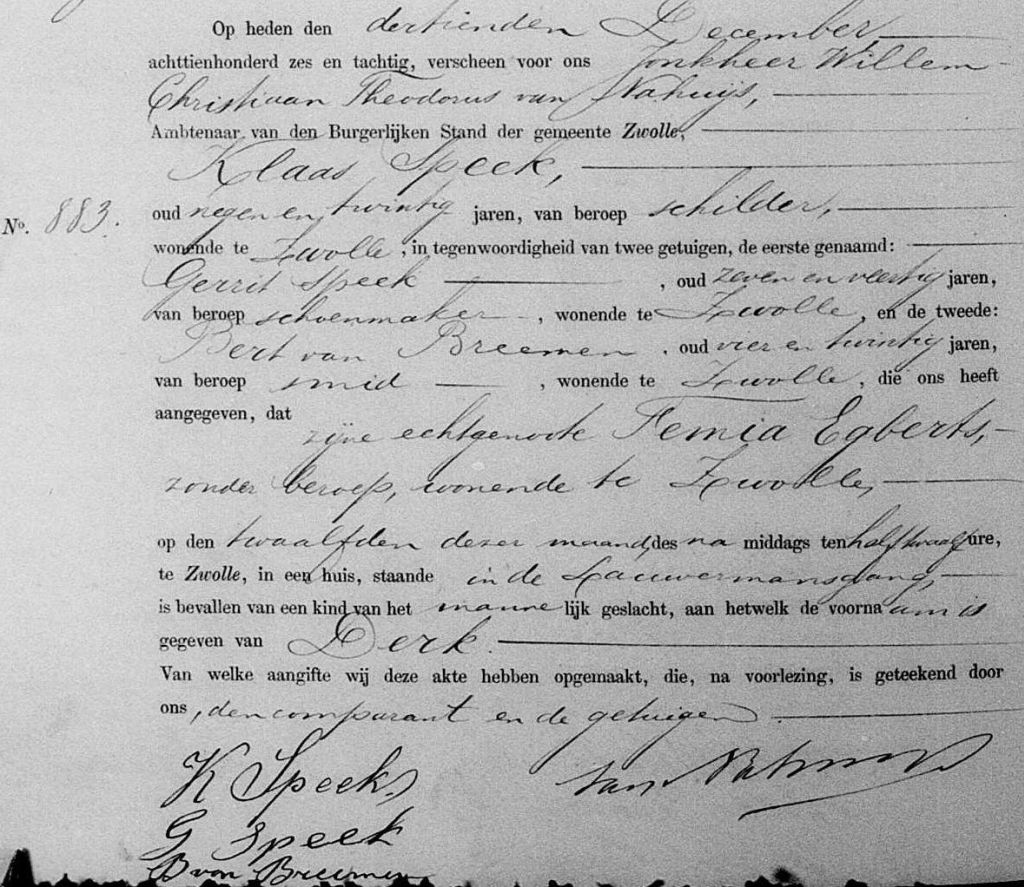 Op heden den dertienden December
achttienhonderd zes en tachtig, verscheen voor ons Jonkheer Willem
Christiaan Theodorus van Nahuijs,
Ambtenaar van den Burgerlijken Stand der gemeente Zwolle,
Klaas Speek,
No. 883. oud negen en twintig jaren, van beroep schilder,
wonende te Zwolle, in tegenwoordigheid van twee getuigen, de eerste genaamd:
Gerrit Speek, oud zeven en veertig jaren,
van beroep schoenmaker, wonende te Zwolle, en de tweede:
Bert van Breemen, oud vier en twintig jaren,
van beroep smid, wonende te Zwolle, die ons heeft
aangegeven, dat
zijne echtgenoote Femia Egberts,
zonder beroep, wonende te Zwolle,
op den twaalfden dezer maand, des na middags ten half twaalf ure,
te Zwolle, in een huis, staande in de Lauwermansgang,
is bevallen van een kind van het manne lijk geslacht, aan hetwelk de voorna am is
gegeven van Derk.
Van welke aangifte wij deze akte hebben opgemaakt, die, na voorlezing, is geteekend door
ons, den comparant en de getuigen.
K Speek, van Nahuijs
G Speek
B van Breemen